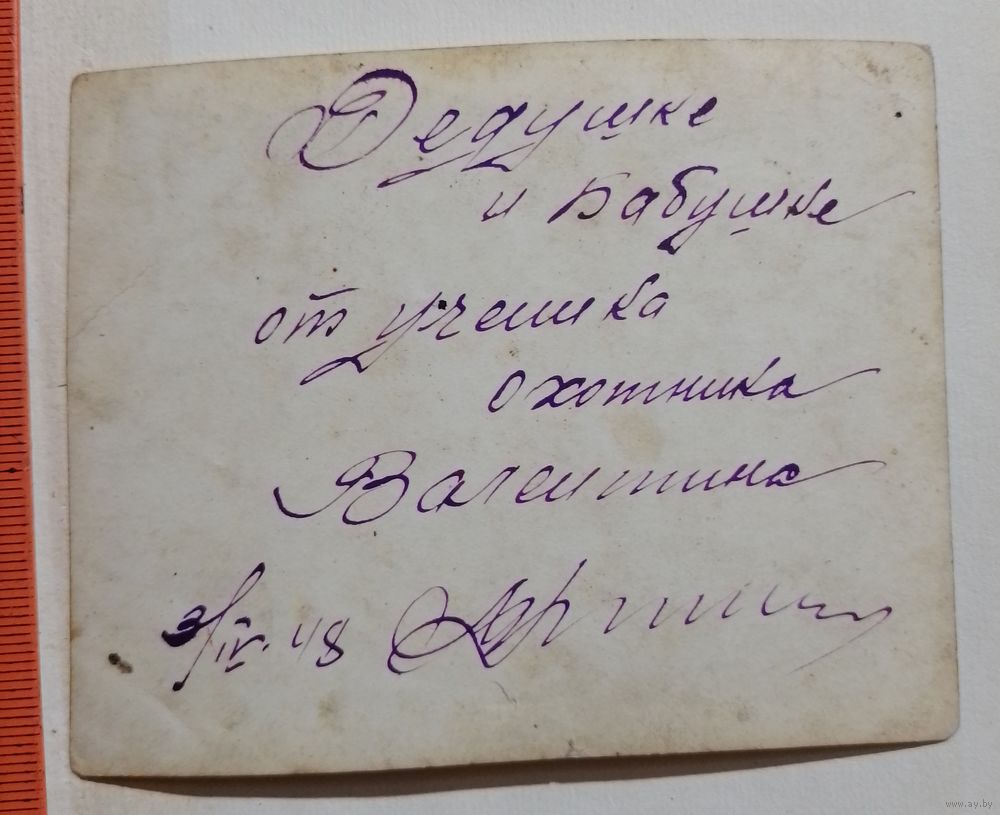 Дедушке
и Бабушке
от ученика
охотника
Валентина
3/IV-48
www.ay.by